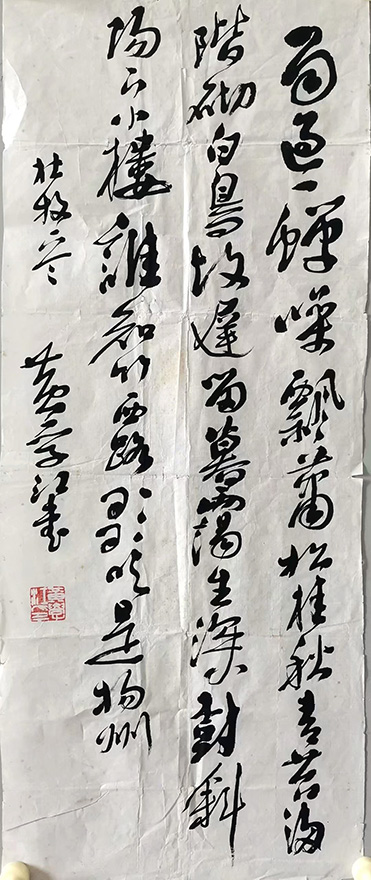 雨過一蟬噪飄蕭松桂秋青苔滿
階砌白鳥故遲留暮靄生深樹斜
陽下小樓誰知竹西路歌吹是揚州
杜牧 黃 江書